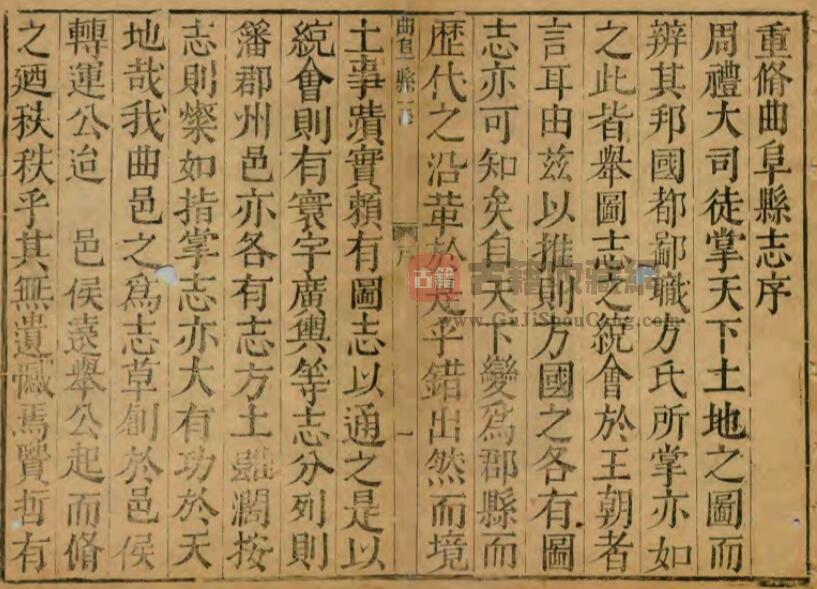 重脩曲阜縣志序
周禮大司徒掌天下土地之圖而
辨其邦國都鄙職方氏所掌亦如
之此皆舉圖志之統會於王朝者
言耳由兹以推則方國之各有圖
志亦可知矣自天下變爲郡縣而
歷代之沿革於是乎錯出然而境
曲阜縣志
序
一
土事蹟實賴有圖志以通之是以
統會則有寰宇廣輿等志分列則
藩郡州邑亦各有志方土雖濶按
志則燦如指掌志亦大有功於天
地哉我曲邑之爲志草創於邑侯
轉運公迨 邑侯遠舉公起而脩
之廼秩秩乎其無遺憾焉賢哲有
古籍
古籍收藏網
www.GuJiShouCang.com